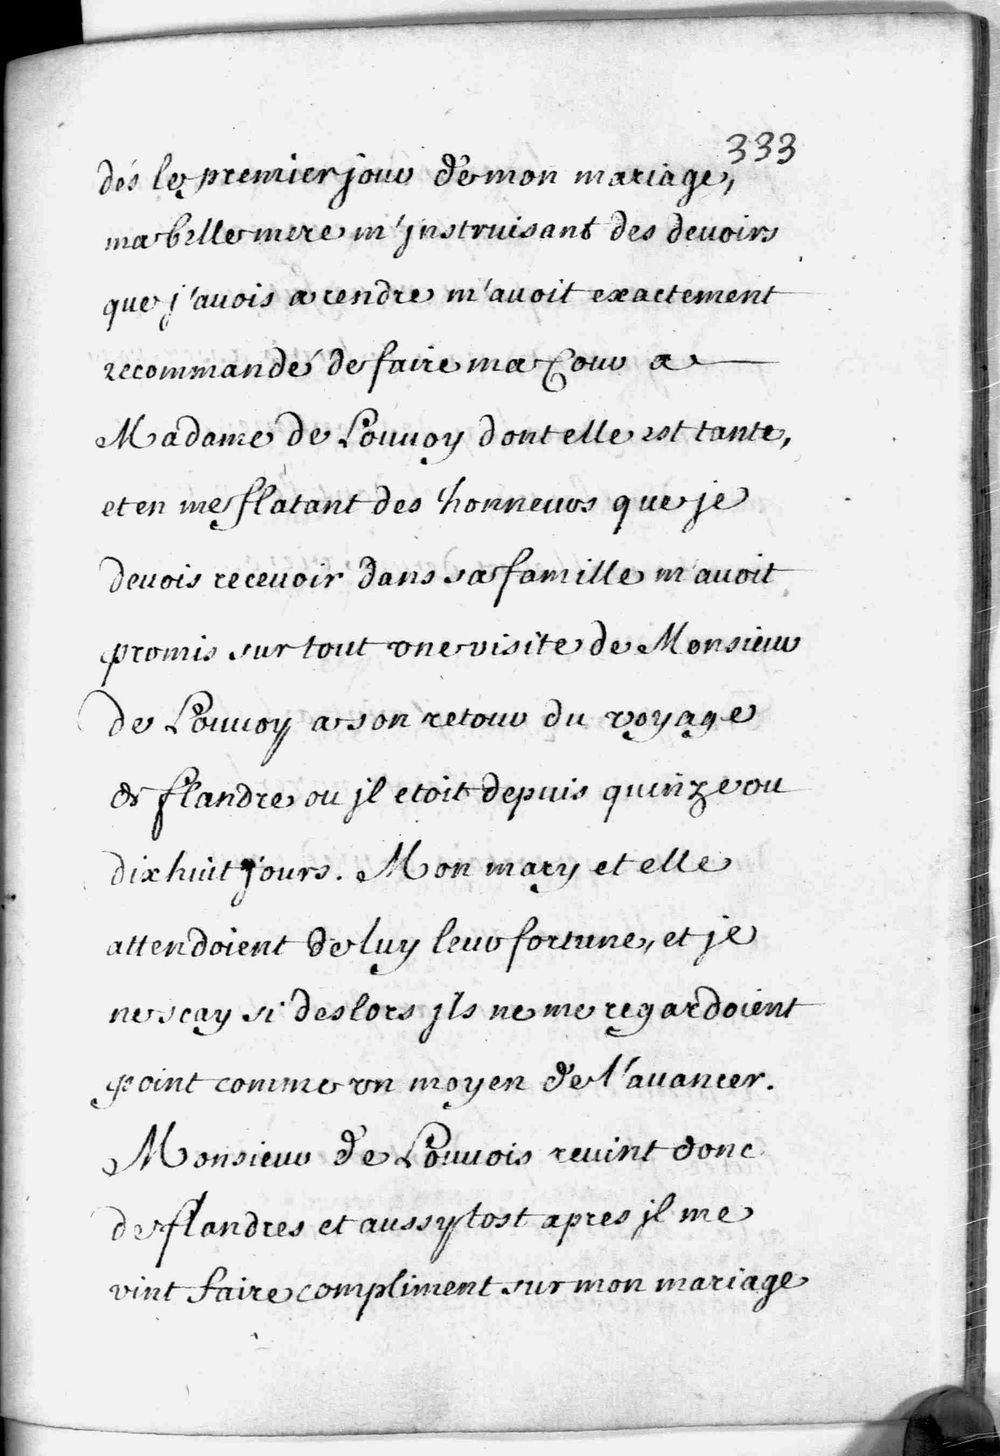 333
dés le premier jour de mon mariage,
ma belle mere m'jnstruisant des devoirs
que j'auois a rendre m'auoit exactement
recommandé de faire ma Cour a
Madame de Louuoy dont elle est tante,
et en me flatant des honneurs que je
deuois receuoir dans sa famille m'auoit
promis sur tout vne visite de Monsieur
de Louuoy a son retour du voyage
de flandre ou jl etoit depuis quinze ou
dix huit jours. Mon mary et elle
attendoient de luy leur fortune, et je
ne scay si des lors jls ne me regardoient
point comme vn moyen de l'auancer.
Monsieur de Louuois reuint donc
de flandres et aussy tost apres jl me
vint faire compliment sur mon mariage